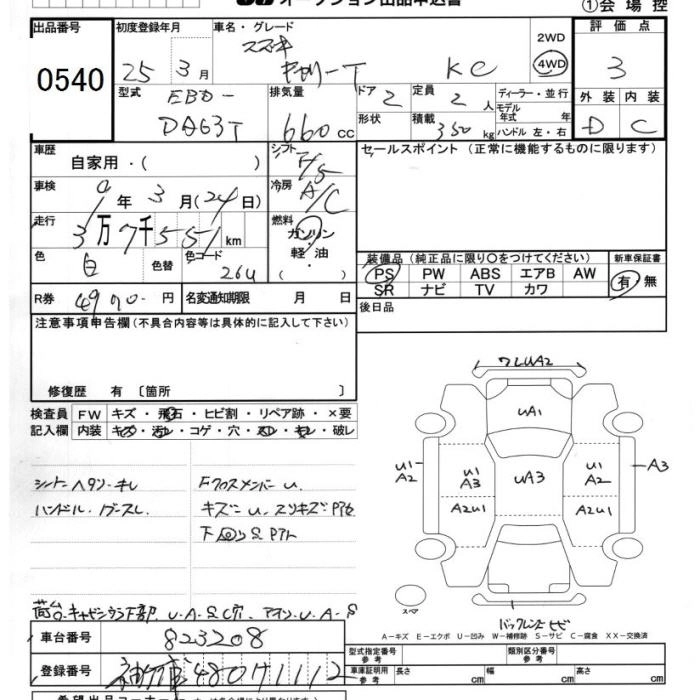 オークション出品申込書
①会場控
出品番号 0540
初度登録年月 25年 3月
車名・グレード スズキ キャリーT KC
2WD 4WD
評価点 3
型式 EBD-DA63T
排気量 660cc
ドア 2
形状
定員 2人
積載 350kg
ディーラー・並行
モデル年式 年
ハンドル 左・右
外装 D
内装 C
車歴 自家用・( )
シフト F/5
車検 年 3月(24日)
冷房 A/C
走行 3万7千551km
燃料 ガソリン・軽油 ( )
色 白
色替
色コード 26U
R券 円
名変通知期限 月 日
セールスポイント(正常に機能するものに限ります)
装備品(純正品に限り○をつけてください)
新車保証書
PS PW ABS エアB AW
有・無
SR ナビ TV カワ
後日品
注意事項申告欄(不具合内容等は具体的に記入して下さい)
修復歴 有〔箇所 〕
検査員 FW キズ・飛石・ヒビ割・リペア跡・×要
記入欄 内装 キズ・汚レ・コゲ・穴・スレ・キレ・破レ
シート ヘタリ・キレ
ハンドル・
Fクロスメンバー U.
キズU スリキズ
下回りS
ワレUA2
UA1
U1 A2
U1 A3
UA3
U1 A2
A3
A2U1
A2U1
スペア
バックレンズヒビ
A-キズ E-エクボ U-凹み W-補修跡 S-サビ C-腐食 XX-交換済
車台番号 823208
登録番号 480 11112
型式指定番号 参考
類別区分番号 参考
車庫証明用 参考 長さ cm 幅 cm 高さ cm